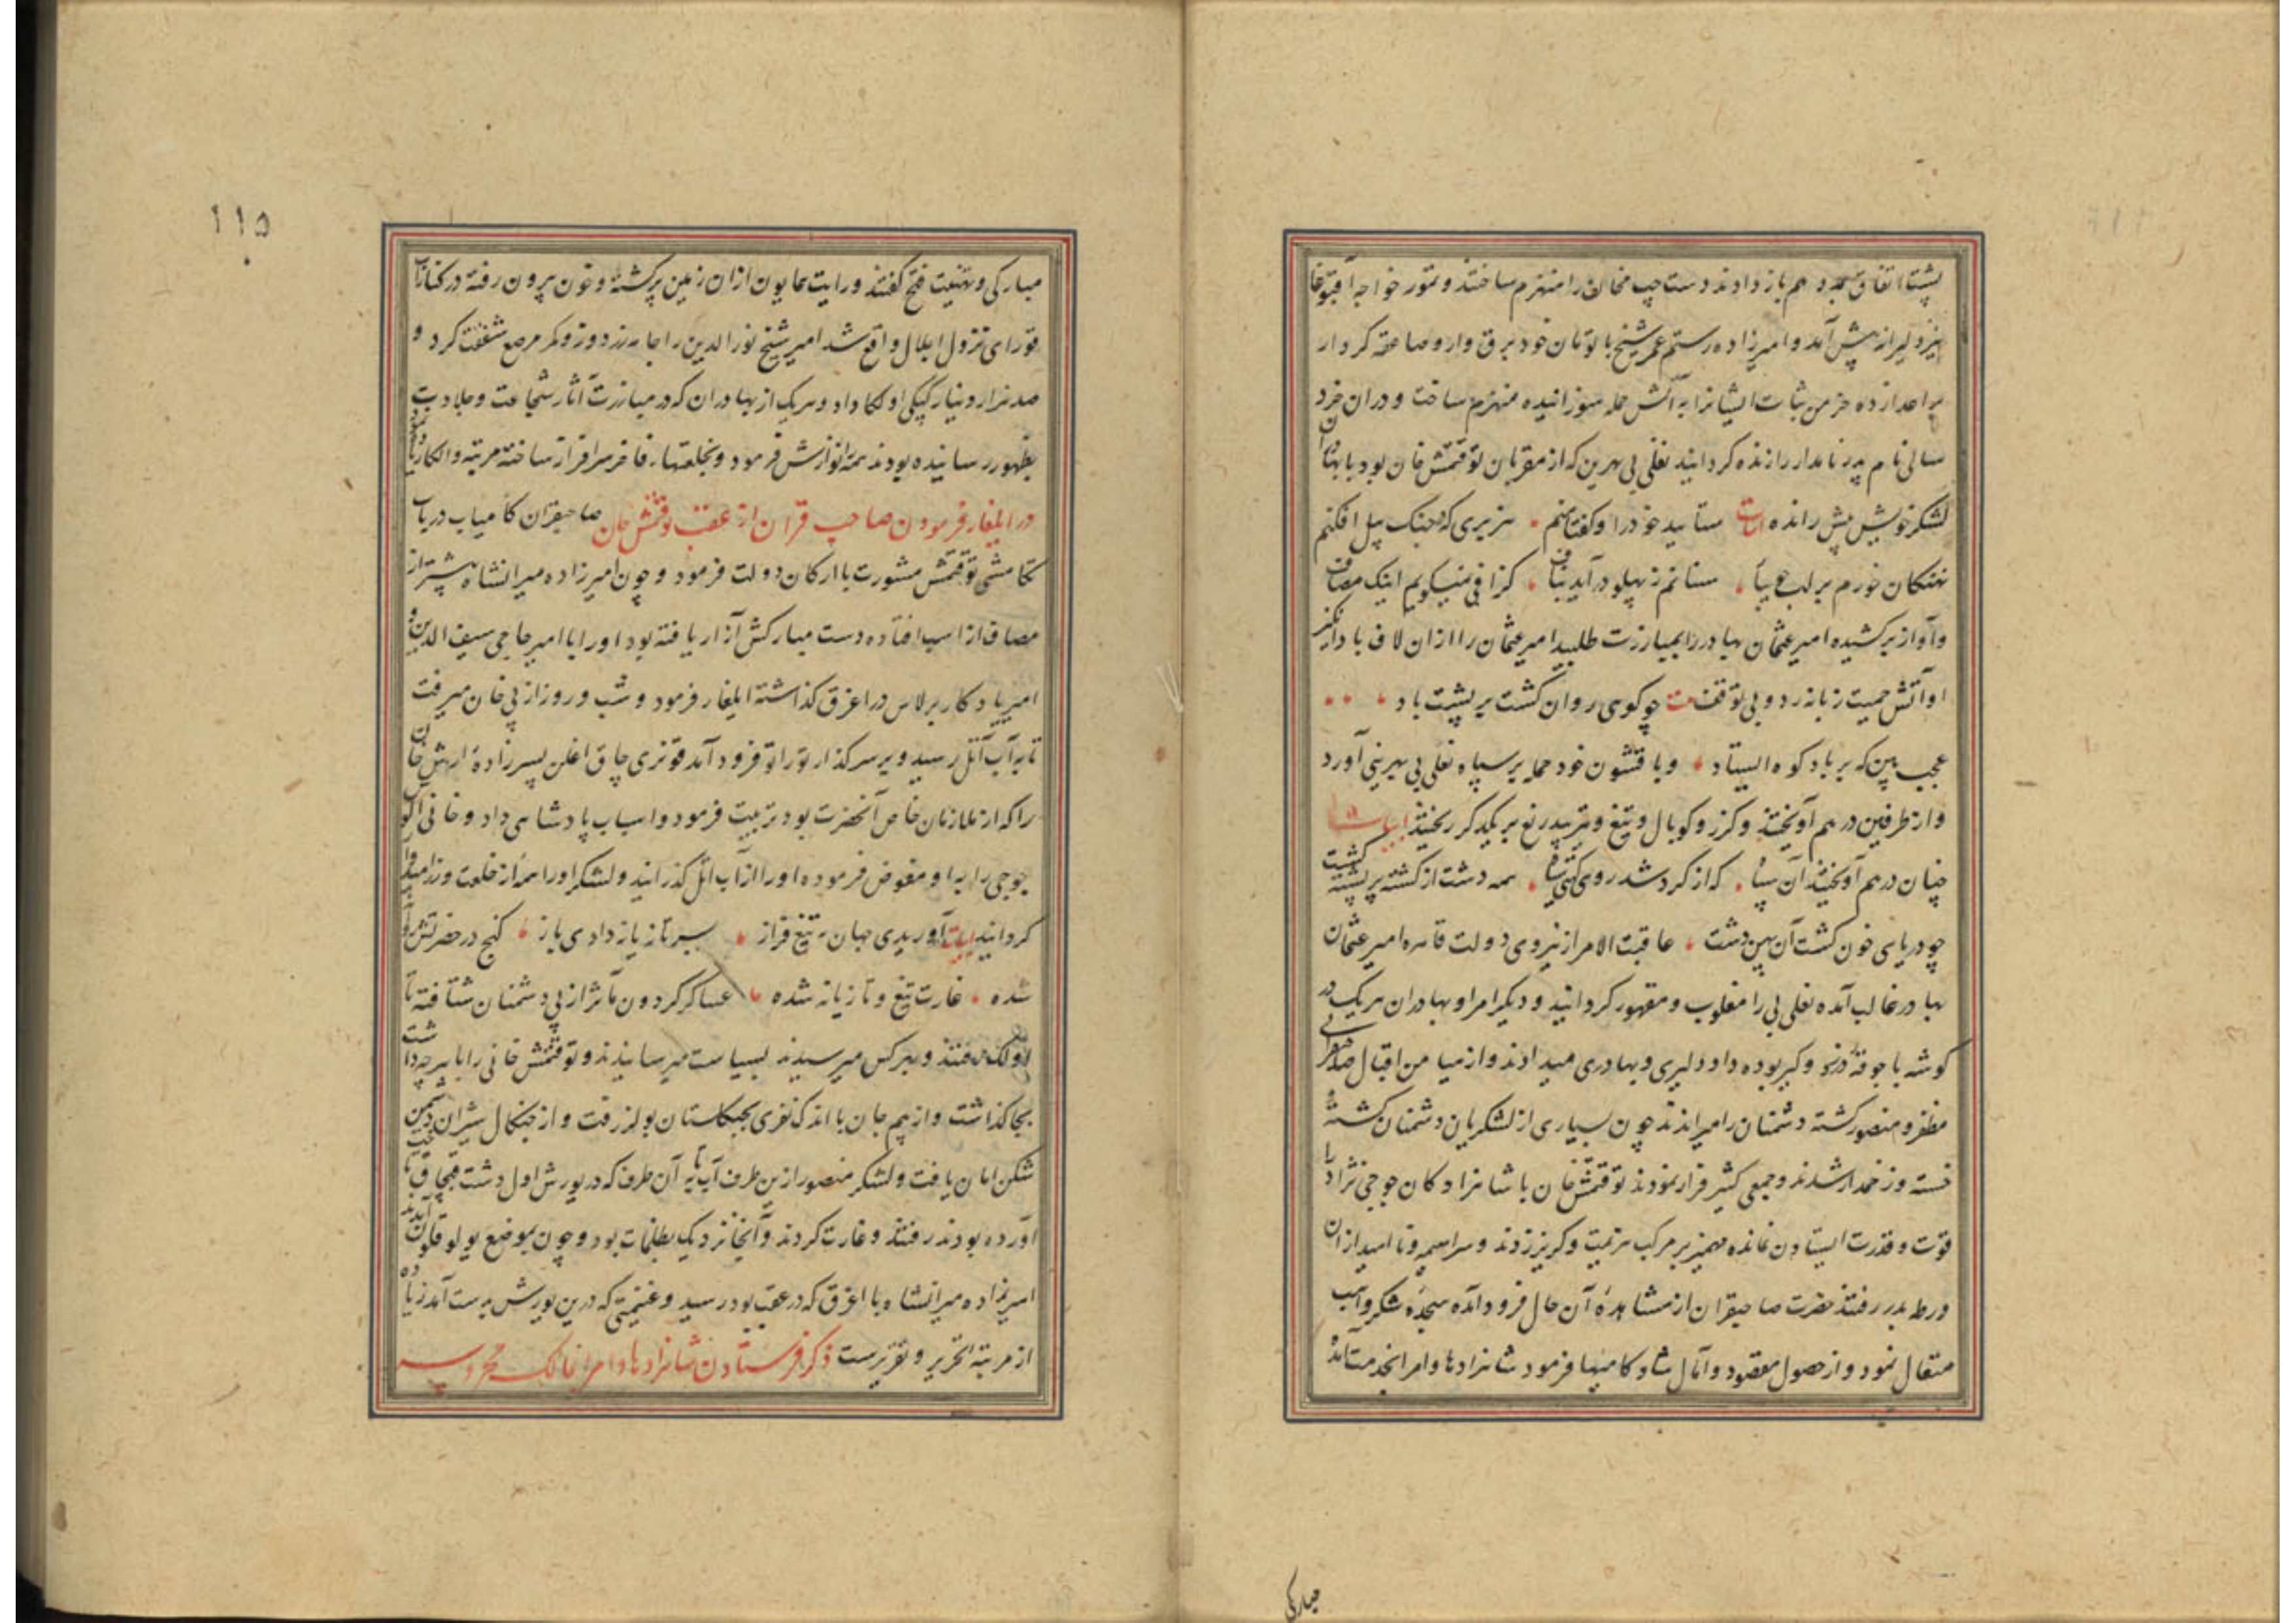 پشتا اتفاق مجدد هم باز دادند دست چپ مخالف را منهزم ساختند و تمور خواجه آقبوغا
نیز دلیرانه پیش آمد و امیرزاده رستم عمر شیخ با تومان خود برق وار و صاعقه کردار
خرمن ثبات ایشانرا به آتش حمله سوزانیده منهزم ساخت و دران خرد
سالی نام پدر نامدار را زنده کردانید یغلی بی بهرین که از مقربان توقتمش خان بود با بهادران
لشکر خویش پیش رانده ابیات ستایید خود را و کفتا منم هزبری که در جنک پیل افکنم
نهنکان خورم بر لب ستانم ز پهلو درآید کزافی نمیکویم اینک مصاف
و آواز برکشیده امیر عثمان بهادر را بمبارزت طلبید امیر عثمان را ازان لاف باد
او آتش حمیت زبانه زد و بی توقف بیت چو کوی روان کشت بر پشت باد
عجب بین که بر باد کوه ایستاد و با قشون خود حمله بر سپاه یغلی بی بهرینی آورد
و از طرفین درهم آویختند و کرز و کوبال و تیغ و تیر بیدریغ بر یکدکر ریختند ابیات
چنان درهم آویختند آن سپاه که از کرد شد روی کیتی سیاه همه دشت از کشته پر پشته کشت
چو دریای خون کشت آن پهن دشت عاقبت الامر از نیروی دولت قاهره امیر عثمان
بهادر غالب آمده یغلی بی را مغلوب و مقهور کردانید و دیکر امرا و بهادران هریک در
کوشه با جوقه در و کیر بوده داد دلیری و بهادری میدادند و از میامن اقبال صاحبقرانی
مظفر و منصور کشته دشمنان را میراندند چون بسیاری از لشکریان دشمنان کشته
خسته و زخمدار شدند و جمعی کثیر فرار نمودند توقتمش خان با شاهزادکان جوجی نژاد را
قوت و قدرت ایستادن نمانده مهمیز بر مرکب هزیمت و کریز زدند و سراسیمه و ناامید ازان
ورطه بدر رفتند حضرت صاحبقران از مشاهده آن حال فرود آمده سجده شکر واهب
متعال نمود و از حصول مقصود و آمال شاد کامیها فرمود شاهزادها و امرا بخدمت آمده
مبارکی
۱۱۵
مبارکی و تهنیت فتح کفتند و رایت همایون ازان زمین پرکشته و خون بیرون رفته در کنار آب
قورای نزول اجلال واقع شد امیر شیخ نورالدین را جامه زردوز و کمر مرصع شفقت کرد و
صد هزار دینار کپکی او لکا داد و هریک از بهادران که در مبارزت آثار شجاعت و جلادت
بظهور رسانیده بودند همه را نوازش فرمود و بخلعتهاء فاخر سرافراز ساخته مرتبه و الکا زیاد
در ایلغار فرمودن صاحب قران از عقب توقتمش خان صاحبقران کامیاب در باب
تکامشی توقتمش مشورت با ارکان دولت فرمود و چون امیرزاده میرانشاه پیشتر از
مصاف از اسب افتاده دست مبارکش آزار یافته بود او را با امیر حاجی سیف الدین و
امیر یادکار برلاس در اغرق کذاشته ایلغار فرمود و شب و روز از پی خان میرفت
تا به آب اتل رسید و بر سر کذار توراتو فرود آمد قونری چاق اغلن پسرزاده ارش خان
را که از ملازمان خاص آنحضرت بود تربیت فرمود و اسباب پادشاهی داد و خانی الوس
جوجی را به او مفوض فرموده او را از آب اتل کذرانید و لشکر او را همه از خلعت و زر
کردانید ابیات آوریدی جهان به تیغ فراز بسر تازیانه دادی باز کنج در حضرتش
شده غارت تیغ و تازیانه شده عساکر کردون مآثر از پی دشمنان شتافته تا
اولک رفتند و بهرکس میرسیدند بسیاست میرسانیدند و توقتمش خانی را با هرچه داشت
بجا کذاشت و از بیم جان با اندک نفری بجنکلستان بولر رفت و از چنکال شیران دشمن
شکن امان یافت و لشکر منصور ازین طرف آب تا به آن طرف که در یورش اول دشت قبچاق
آورده بودند رفتند و غارت کردند و آنجا نزدیک بظلمات بود و چون بموضع یولوقلوق آمدند
امیرزاده میرانشاه با اغرق که در عقب بود رسید و غنیمتی که درین یورش بدست آمد زیاده
از مرتبه تحریر و تقریرست ذکر فرستادن شاهزادها و امرا بممالک محروسه